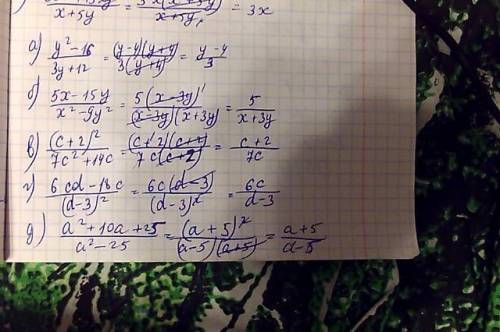 x+5y = x+5y = 3x
а) y²-16 / 3y+12 = (y-4)(y+4) / 3(y+4) = y-4 / 3
б) 5x-15y / x²-9y² = 5(x-3y) / (x-3y)(x+3y) = 5 / x+3y
в) (c+2)² / 7c²+14c = (c+2)(c+2) / 7c(c+2) = c+2 / 7c
г) 6cd-18c / (d-3)² = 6c(d-3) / (d-3)² = 6c / d-3
д) a²+10a+25 / a²-25 = (a+5)² / (a-5)(a+5) = a+5 / a-5